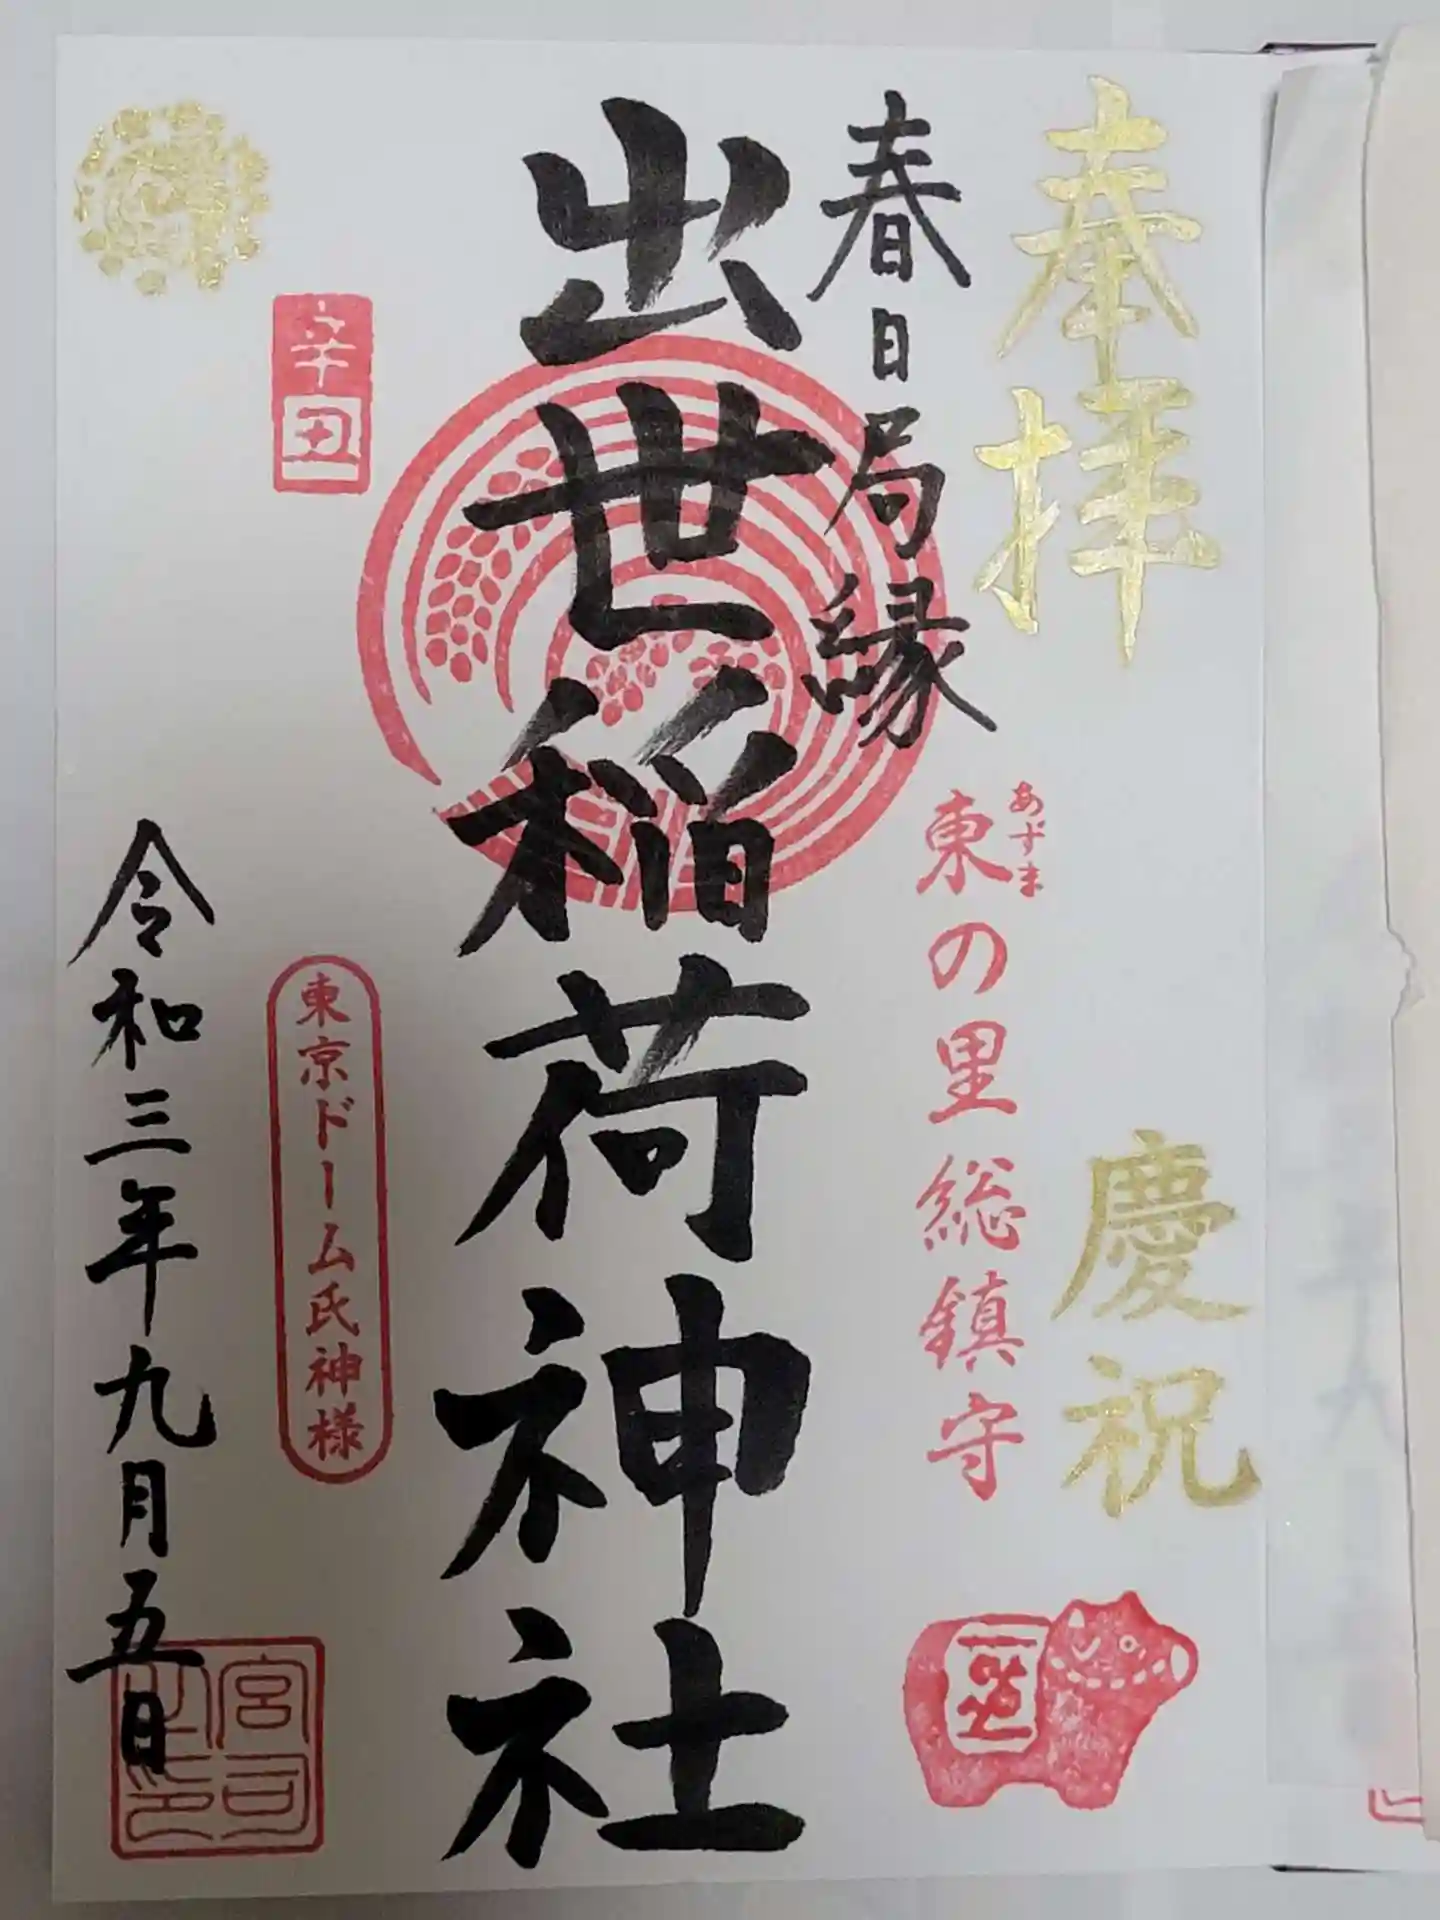 奉拝
慶祝
春日局縁
あずま
東の里総鎮守
出世稲荷神社
辛丑
東京ドーム氏神様
令和三年九月五日
宮司之印